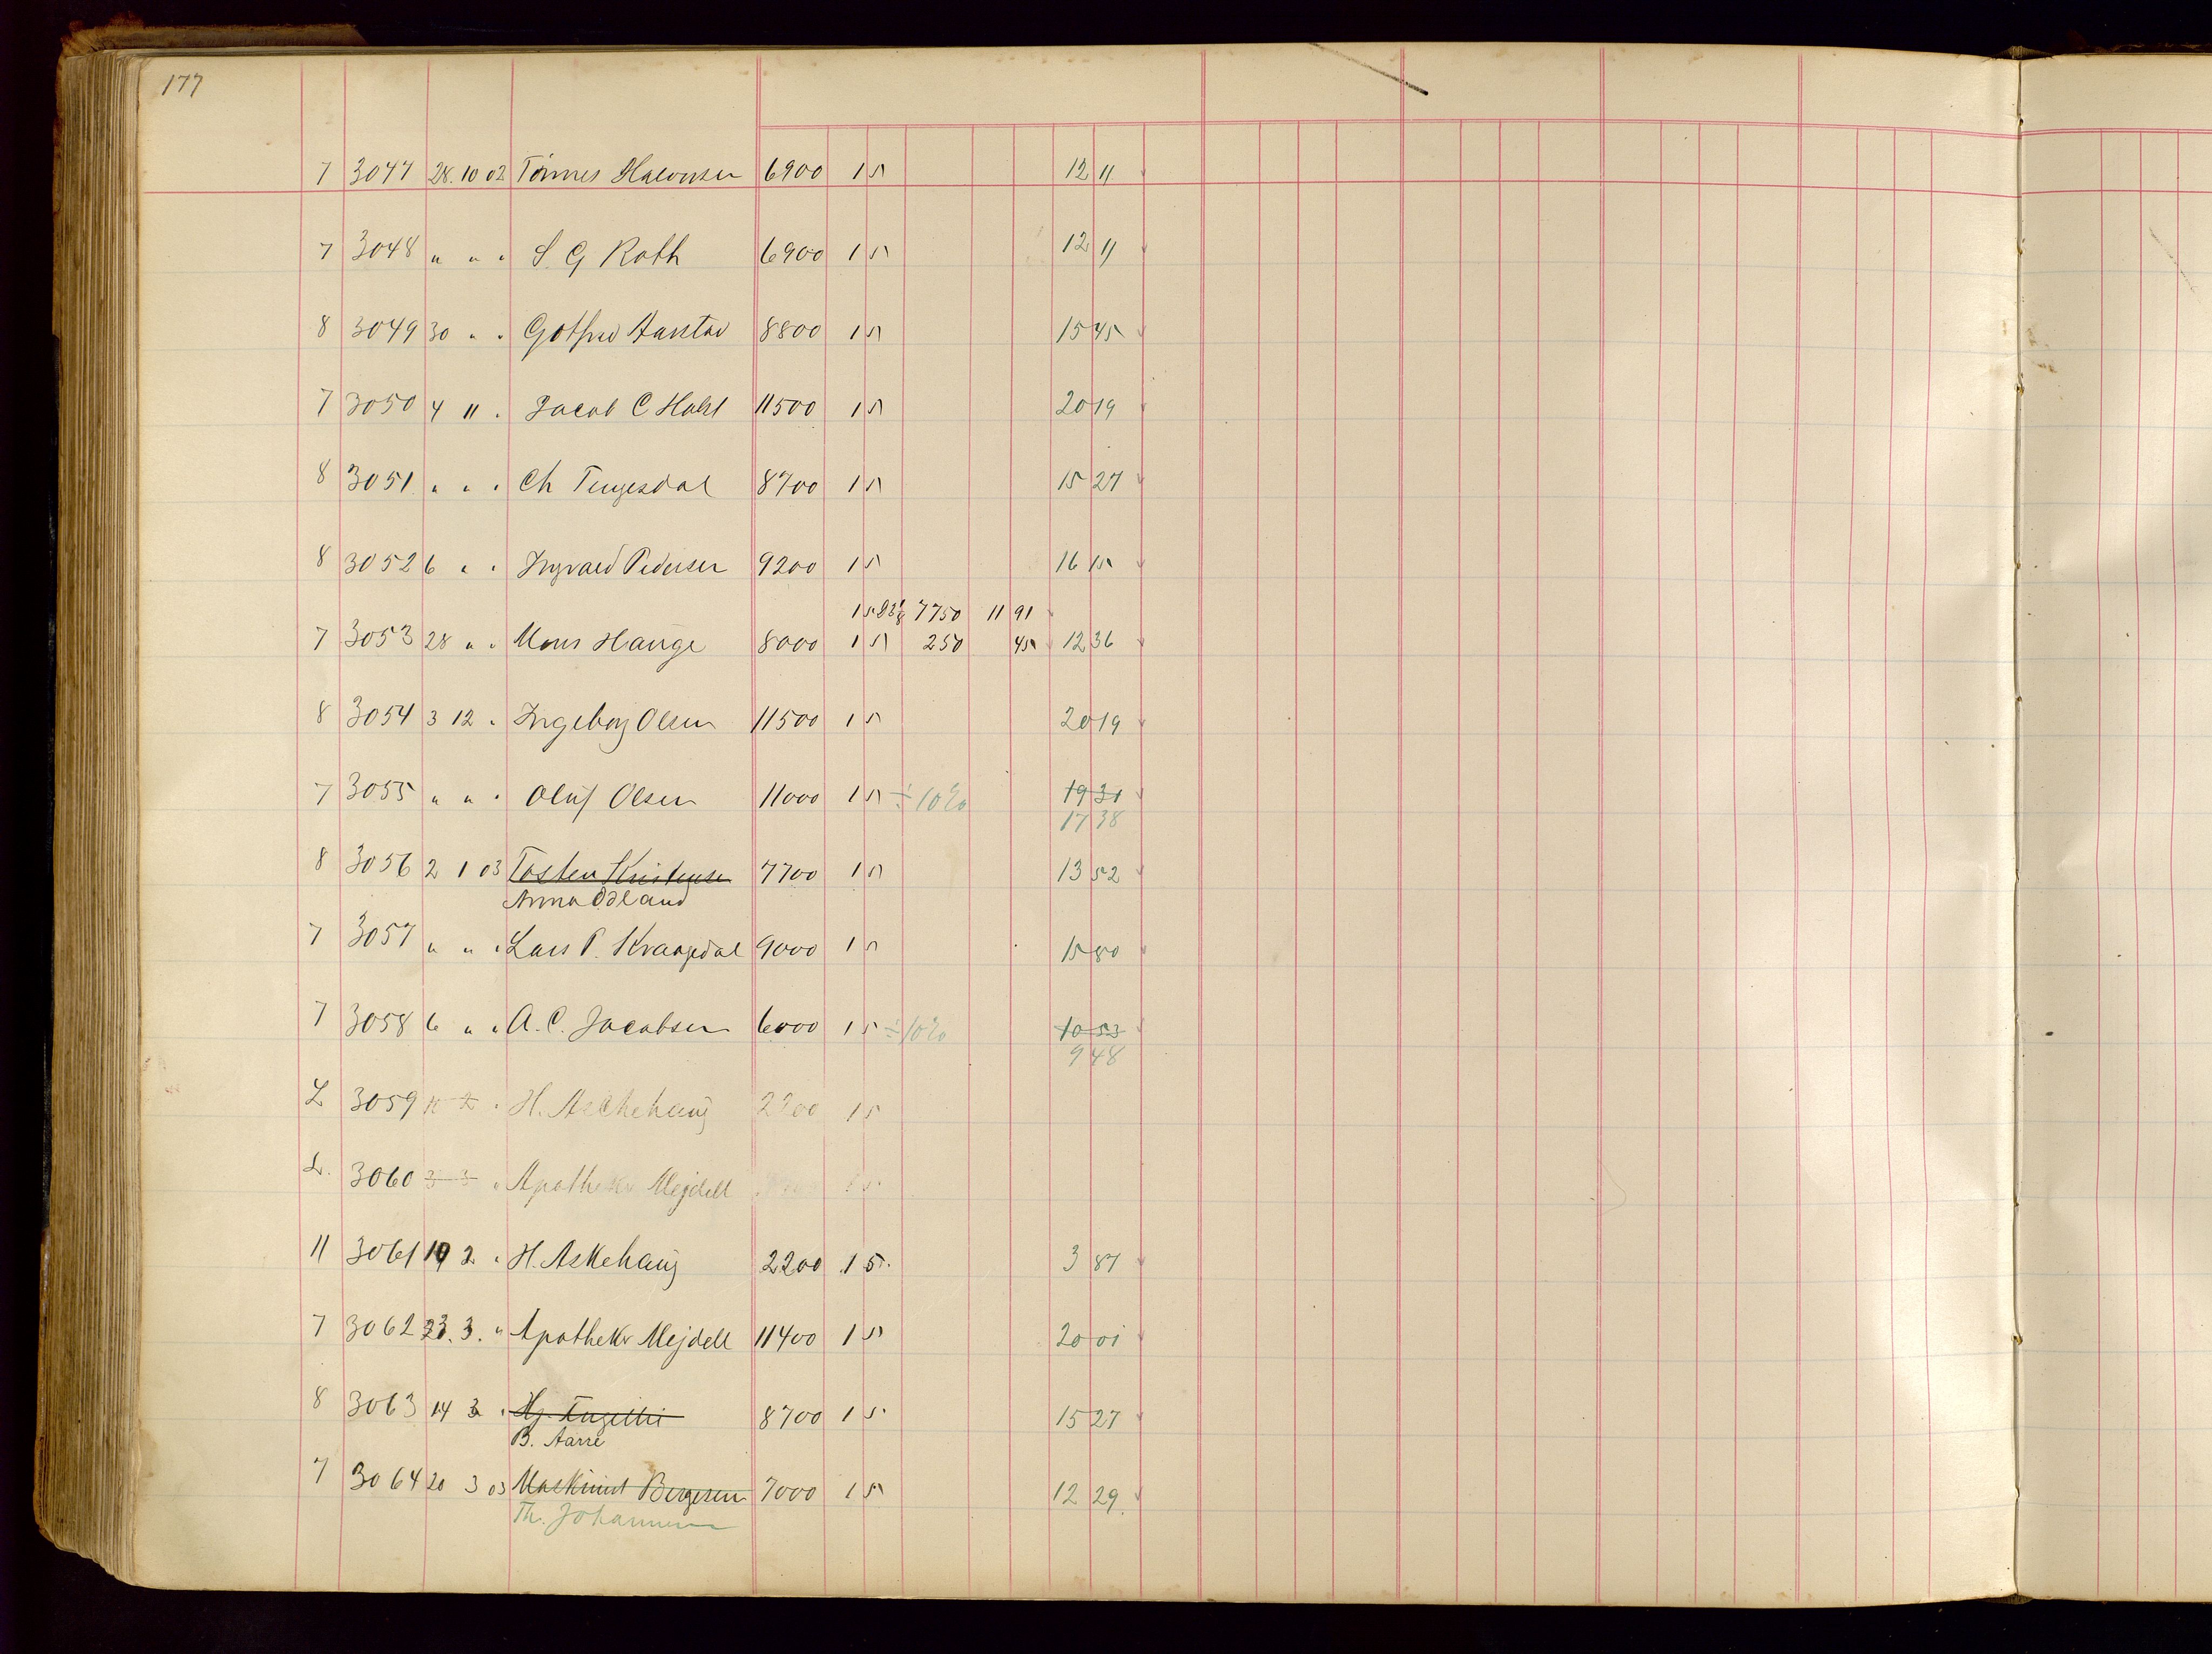 177
7 3047 28. 10 02 Tönnes Halvorsen 6900 1 5 12 11
7 3048 " " " S. G Roth 6900 1 5 12 11
8 3049 30 " " Gotfred Aarstad 8800 1 5 15 45
7 3050 4 11 " Jacob C Holst 11500 1 5 20 19
8 3051 " " " Ch Tengesdal 8700 1 5 15 27
8 3052 6 " " Ingvald Pedersen 9200 1 5 16 15
1 5 7750 11 91
7 3053 28 " " Mons Hauge 8000 1 5 250 45 12 36
8 3054 3 12 " Ingeborg Olsen 11500 1 5 20 19
7 3055 " " " Oluf Olsen 11000 1 5 ÷ 10% 19 31
17 38
8 3056 2 1 03 Tosten Kristensen 7700 1 5 13 52
Anna Odland
7 3057 " " " Lars P. Kvaagedal 9000 1 5 15 80
7 3058 6 " " A. C. Jacobsen 6000 1 5 ÷ 10% 10 53
9 48
L 3059 10 2 " H. Aschehoug 2200 1 5
L. 3060 3 3 " Apotheker Mejdell 1 5
11 3061 10 2 " H. Askehaug 2200 1 5 3 87
7 3062 23. 3. " Apotheker Mejdell 11400 1 5 20 01
8 3063 14 3 " 8700 1 5 15 27
B. Aarre
7 3064 20 3 03 Maskinist Bergesen 7000 1 5 12 29
Th. Johannesen